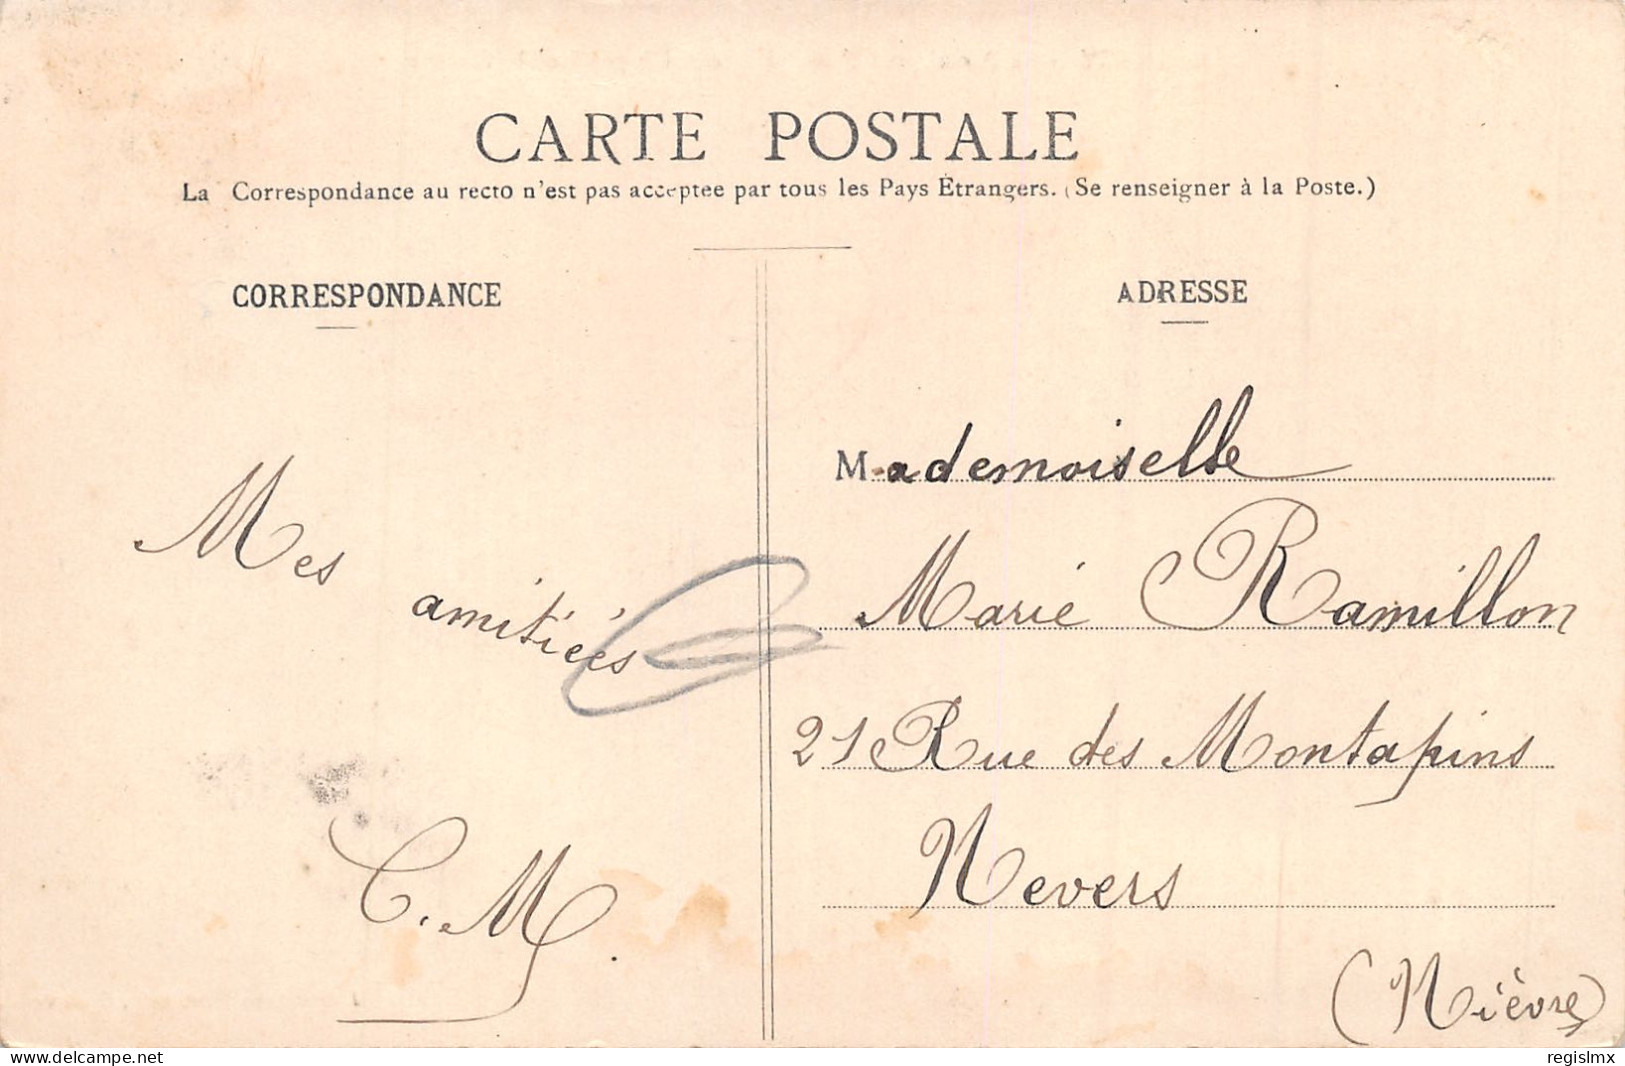 CARTE POSTALE
La Correspondance au recto n'est pas acceptée par tous les Pays Étrangers. (Se renseigner à la Poste.)
CORRESPONDANCE
Mes
amitiéés
C. M.
ADRESSE
Mademoiselle
Marie Ramillon
21 Rue des Montapins
Nevers
(Nièvre)
www.delcampe.net
regislmx